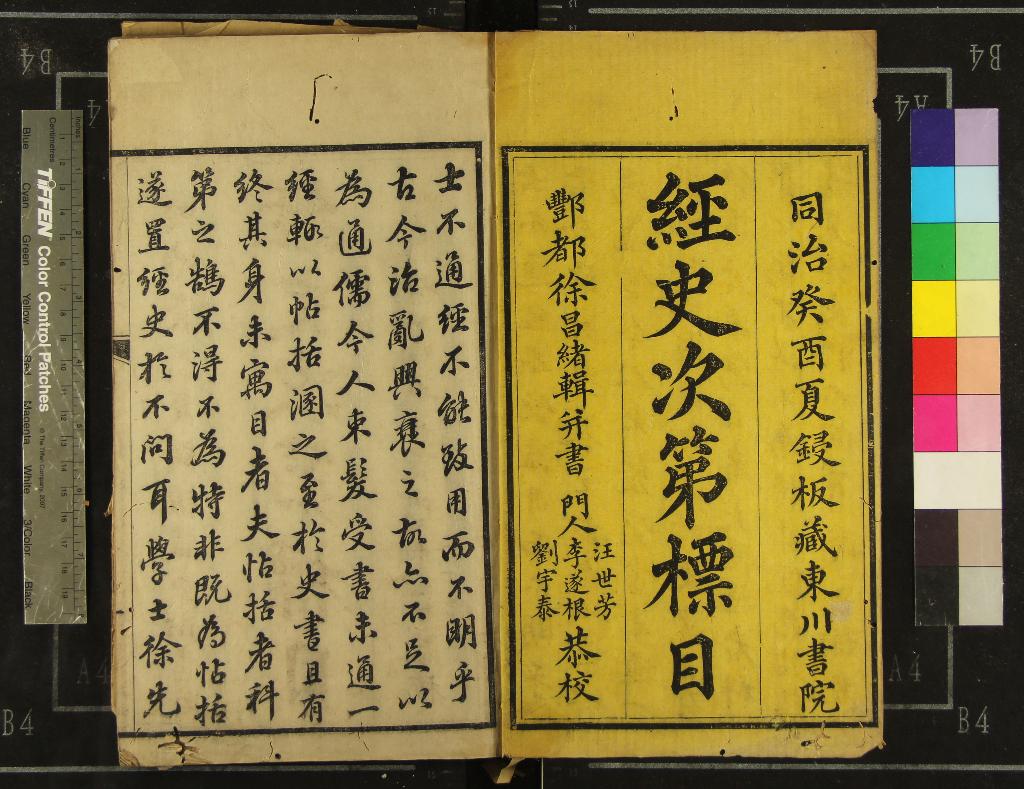 同治癸酉夏鋟板藏東川書院
經史次第標目
酆都徐昌緒輯并書 門人汪世芳李遂根劉宇泰恭校
士不通經不能致用而不明乎
古今治亂興衰之故亦不足以
為通儒今人束髮受書未通一
經輒以帖括溷之至於史書且有
終其身未寓目者夫帖括者科
第之鵠不得不為特非既為帖括
遂置經史於不問耳學士徐先
TIFFEN Color Control Patches
© The Tiffen Company, 2007
Inches
Centimetres
Blue Cyan Green Yellow Red Magenta White 3/Color Black
B4
B4
A4
A4
A4
A4
B4
B4